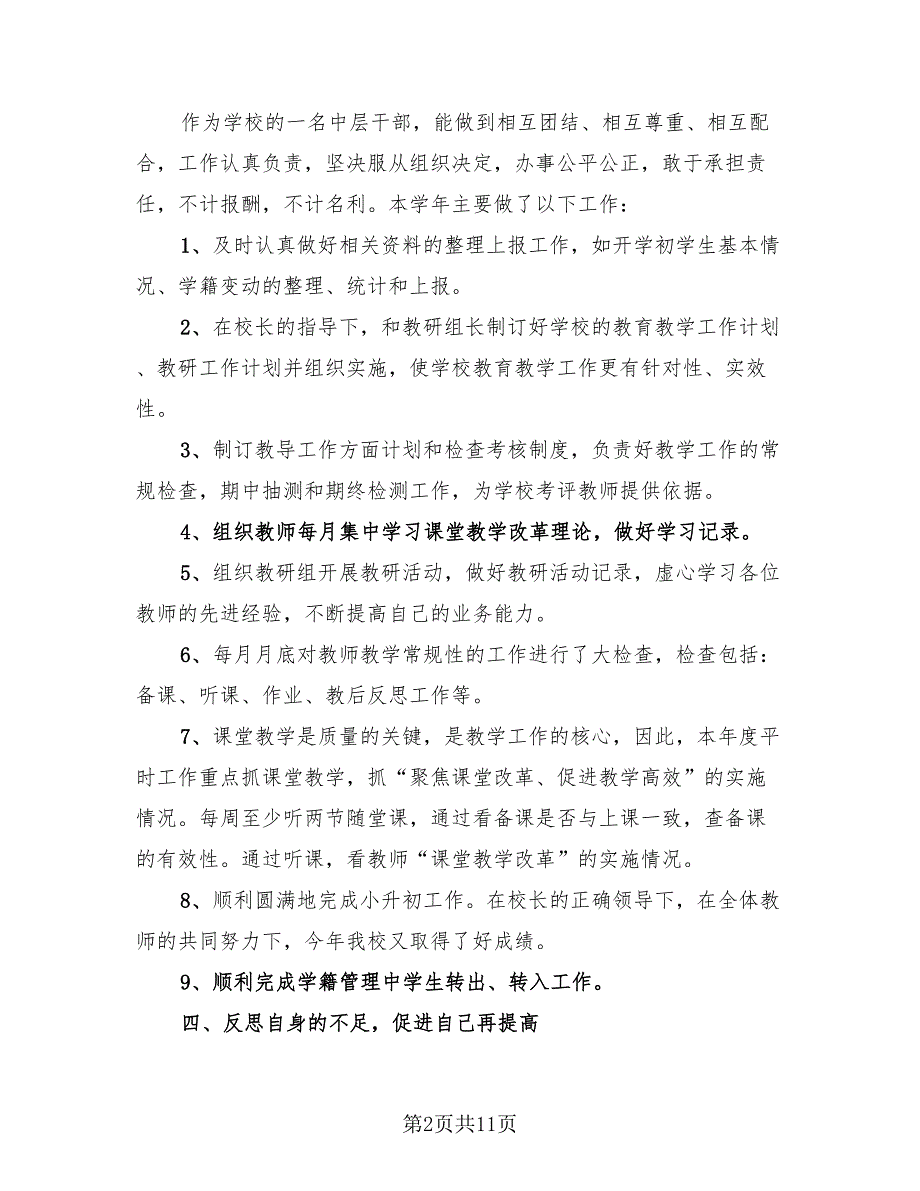 作为学校的一名中层干部，能做到相互团结、相互尊重、相互配
合，工作认真负责，坚决服从组织决定，办事公平公正，敢于承担责
任，不计报酬，不计名利。本学年主要做了以下工作：
1、及时认真做好相关资料的整理上报工作，如开学初学生基本情
况、学籍变动的整理、统计和上报。
2、在校长的指导下，和教研组长制订好学校的教育教学工作计划
、教研工作计划并组织实施，使学校教育教学工作更有针对性、实效
性。
3、制订教导工作方面计划和检查考核制度，负责好教学工作的常
规检查，期中抽测和期终检测工作，为学校考评教师提供依据。
4、组织教师每月集中学习课堂教学改革理论，做好学习记录。
5、组织教研组开展教研活动，做好教研活动记录，虚心学习各位
教师的先进经验，不断提高自己的业务能力。
6、每月月底对教师教学常规性的工作进行了大检查，检查包括：
备课、听课、作业、教后反思工作等。
7、课堂教学是质量的关键，是教学工作的核心，因此，本年度平
时工作重点抓课堂教学，抓“聚焦课堂改革、促进教学高效”的实施
情况。每周至少听两节随堂课，通过看备课是否与上课一致，查备课
的有效性。通过听课，看教师“课堂教学改革”的实施情况。
8、顺利圆满地完成小升初工作。在校长的正确领导下，在全体教
师的共同努力下，今年我校又取得了好成绩。
9、顺利完成学籍管理中学生转出、转入工作。
四、反思自身的不足，促进自己再提高
第2页共11页